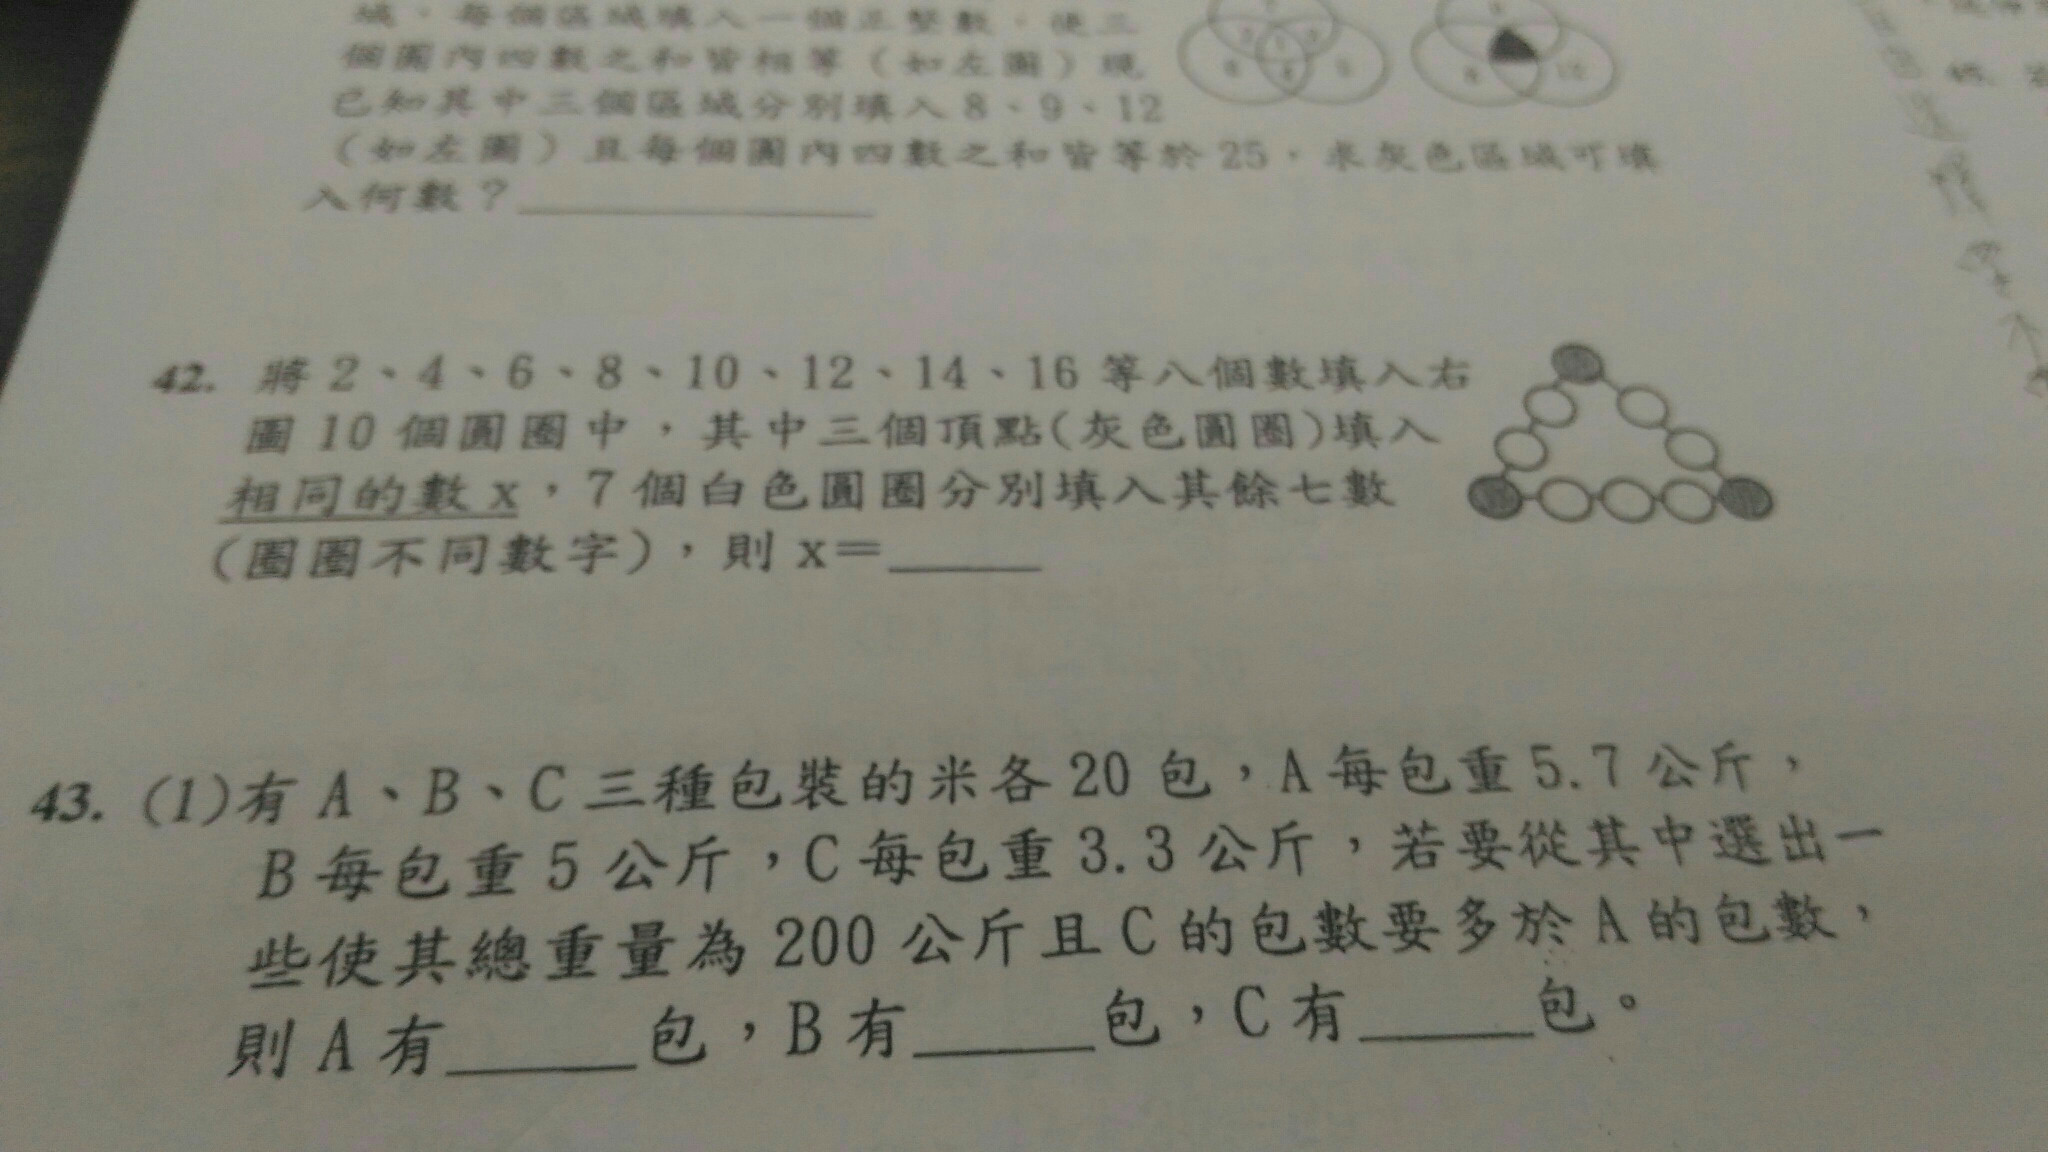 域,每個區域填入一個正整數,使三
個圓內四數之和皆相等(如左圖)現
已知其中三個區域分別填入8、9、12
(如左圖)且每個圓內四數之和皆等於25,求灰色區域可填
入何數?
42. 將2、4、6、8、10、12、14、16等八個數填入右
圖10個圓圈中,其中三個頂點(灰色圓圈)填入
相同的數x,7個白色圓圈分別填入其餘七數
(圈圈不同數字),則x=
43. (1)有A、B、C三種包裝的米各20包,A每包重5.7公斤,
B每包重5公斤,C每包重3.3公斤,若要從其中選出一
些使其總重量為200公斤且C的包數要多於A的包數,
則A有 包,B有 包,C有 包。